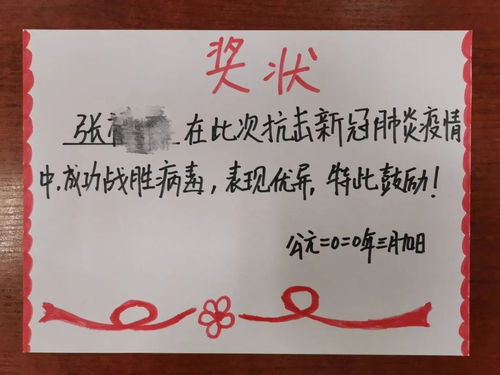 奖状
张 在此次抗击新冠肺炎疫情
中,成功战胜病毒，表现优异,特此鼓励!
公元二0二0年三月